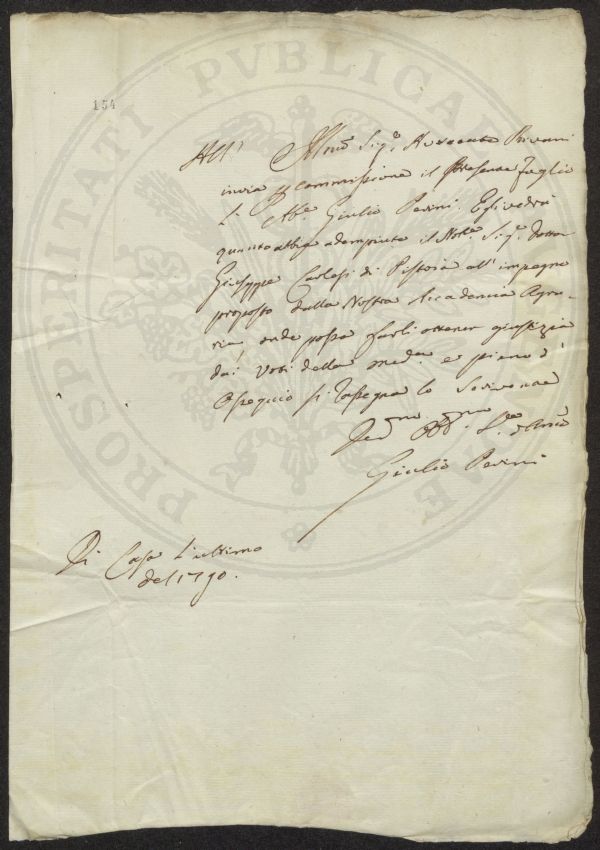 154
PROSPERITATI PVBLICAE
All' Illmo Sigre Avvocato Rivani
invia p commissione il Presente Foglio
L' Abe Giulio Perini. Egli vedrà
quanto abbia adempiuto il Noble Sigr Dottor
Giuseppe Carlesi di Pistoia all' impegno
proposto dalla Nostra Accademia Agra-
ria onde possa farli ottener giustizia
dai Voti della meda e pieno d'
Ossequio si rassegna lo Scrivente
Devmo Obbmo Sre Amico
Giulio Perini
Di Casa L'ultimo
del 1790.